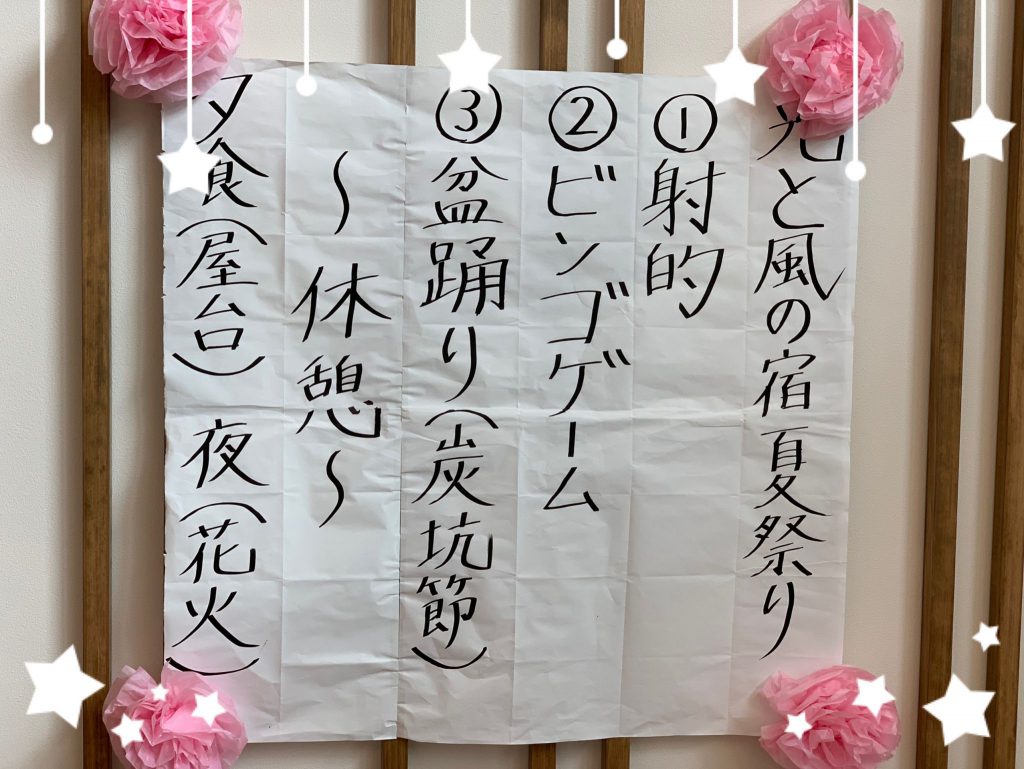 光と風の宿夏祭り
①射的
②ビンゴゲーム
③盆踊り(炭坑節)
～休憩～
夕食(屋台) 夜(花火)